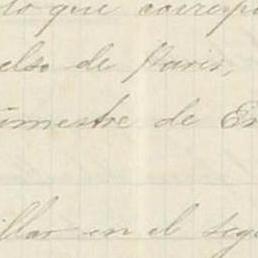 lo que corresp
elso de Paris,
rimestre de En
illar en el segu